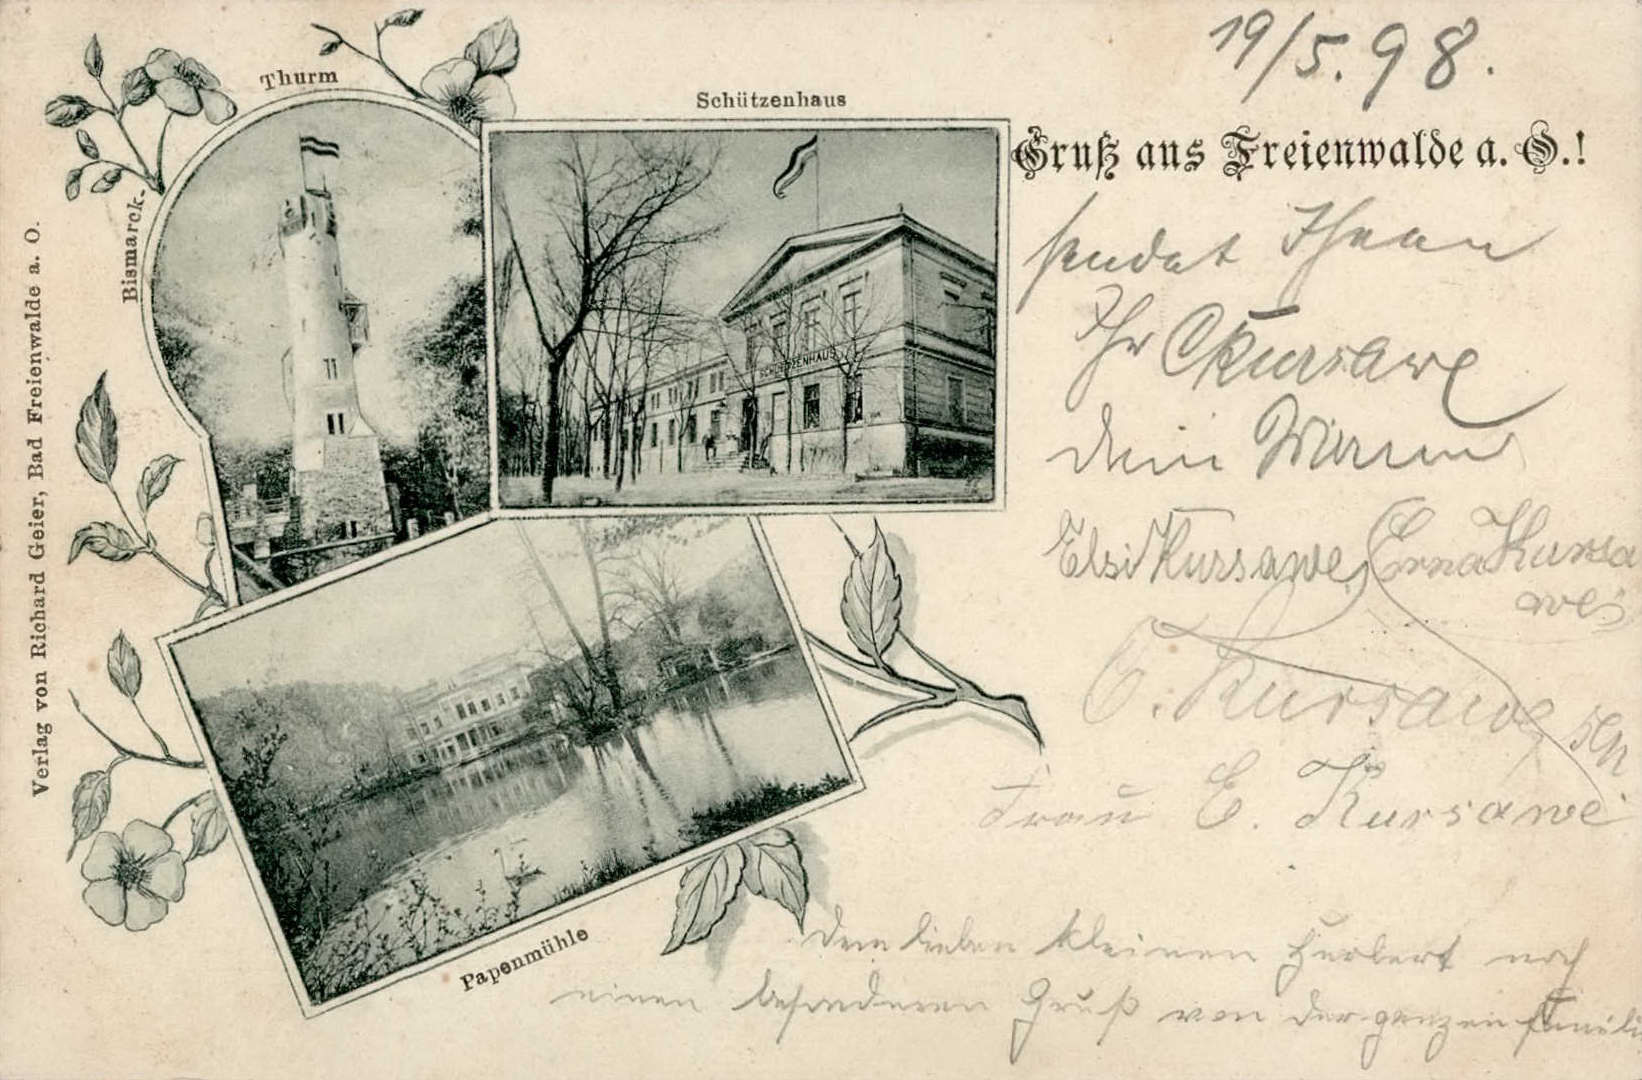 19/5. 98.
Bismarck-Thurm
Schützenhaus
Gruß aus Freienwalde a. O.!
SCHÜTZENHAUS
sendet Ihnen
Ihr Kursawe
Elsi Kursawe, Erna Kursa
we
E. Kursawe sen
Frau E. Kursawe
Dem lieben kleinen Herbert noch
einen besonderen Gruß von der ganzen Famili
Papenmühle
Verlag von Richard Geier, Bad Freienwalde a. O.